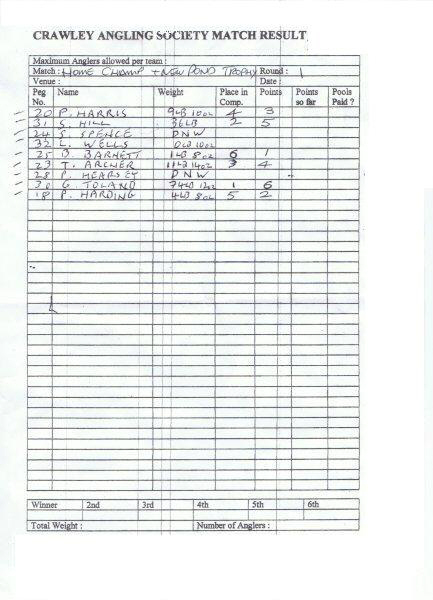 CRAWLEY ANGLING SOCIETY MATCH RESULT
Maximum Anglers allowed per team :
Match : HOME CHAMP + NEW POND TROPHY Round : 1
Venue : Date :
Peg No. Name Weight Place in Comp. Points Points so far Pools Paid ?
20 P. HARRIS 9LB 10oz 4 3
31 S. HILL 36LB 2 5
24 S. SPENCE DNW
32 L. WELLS 0LB 10oz
25 B. BARNETT 1LB 8oz 6 1
23 T. ARCHER 11LB 14oz 3 4
28 P. HEARSEY DNW
30 G. TOLAND 74LB 12oz 1 6
18 P. HARDING 4LB 8oz 5 2
Winner 2nd 3rd 4th 5th 6th
Total Weight : Number of Anglers :